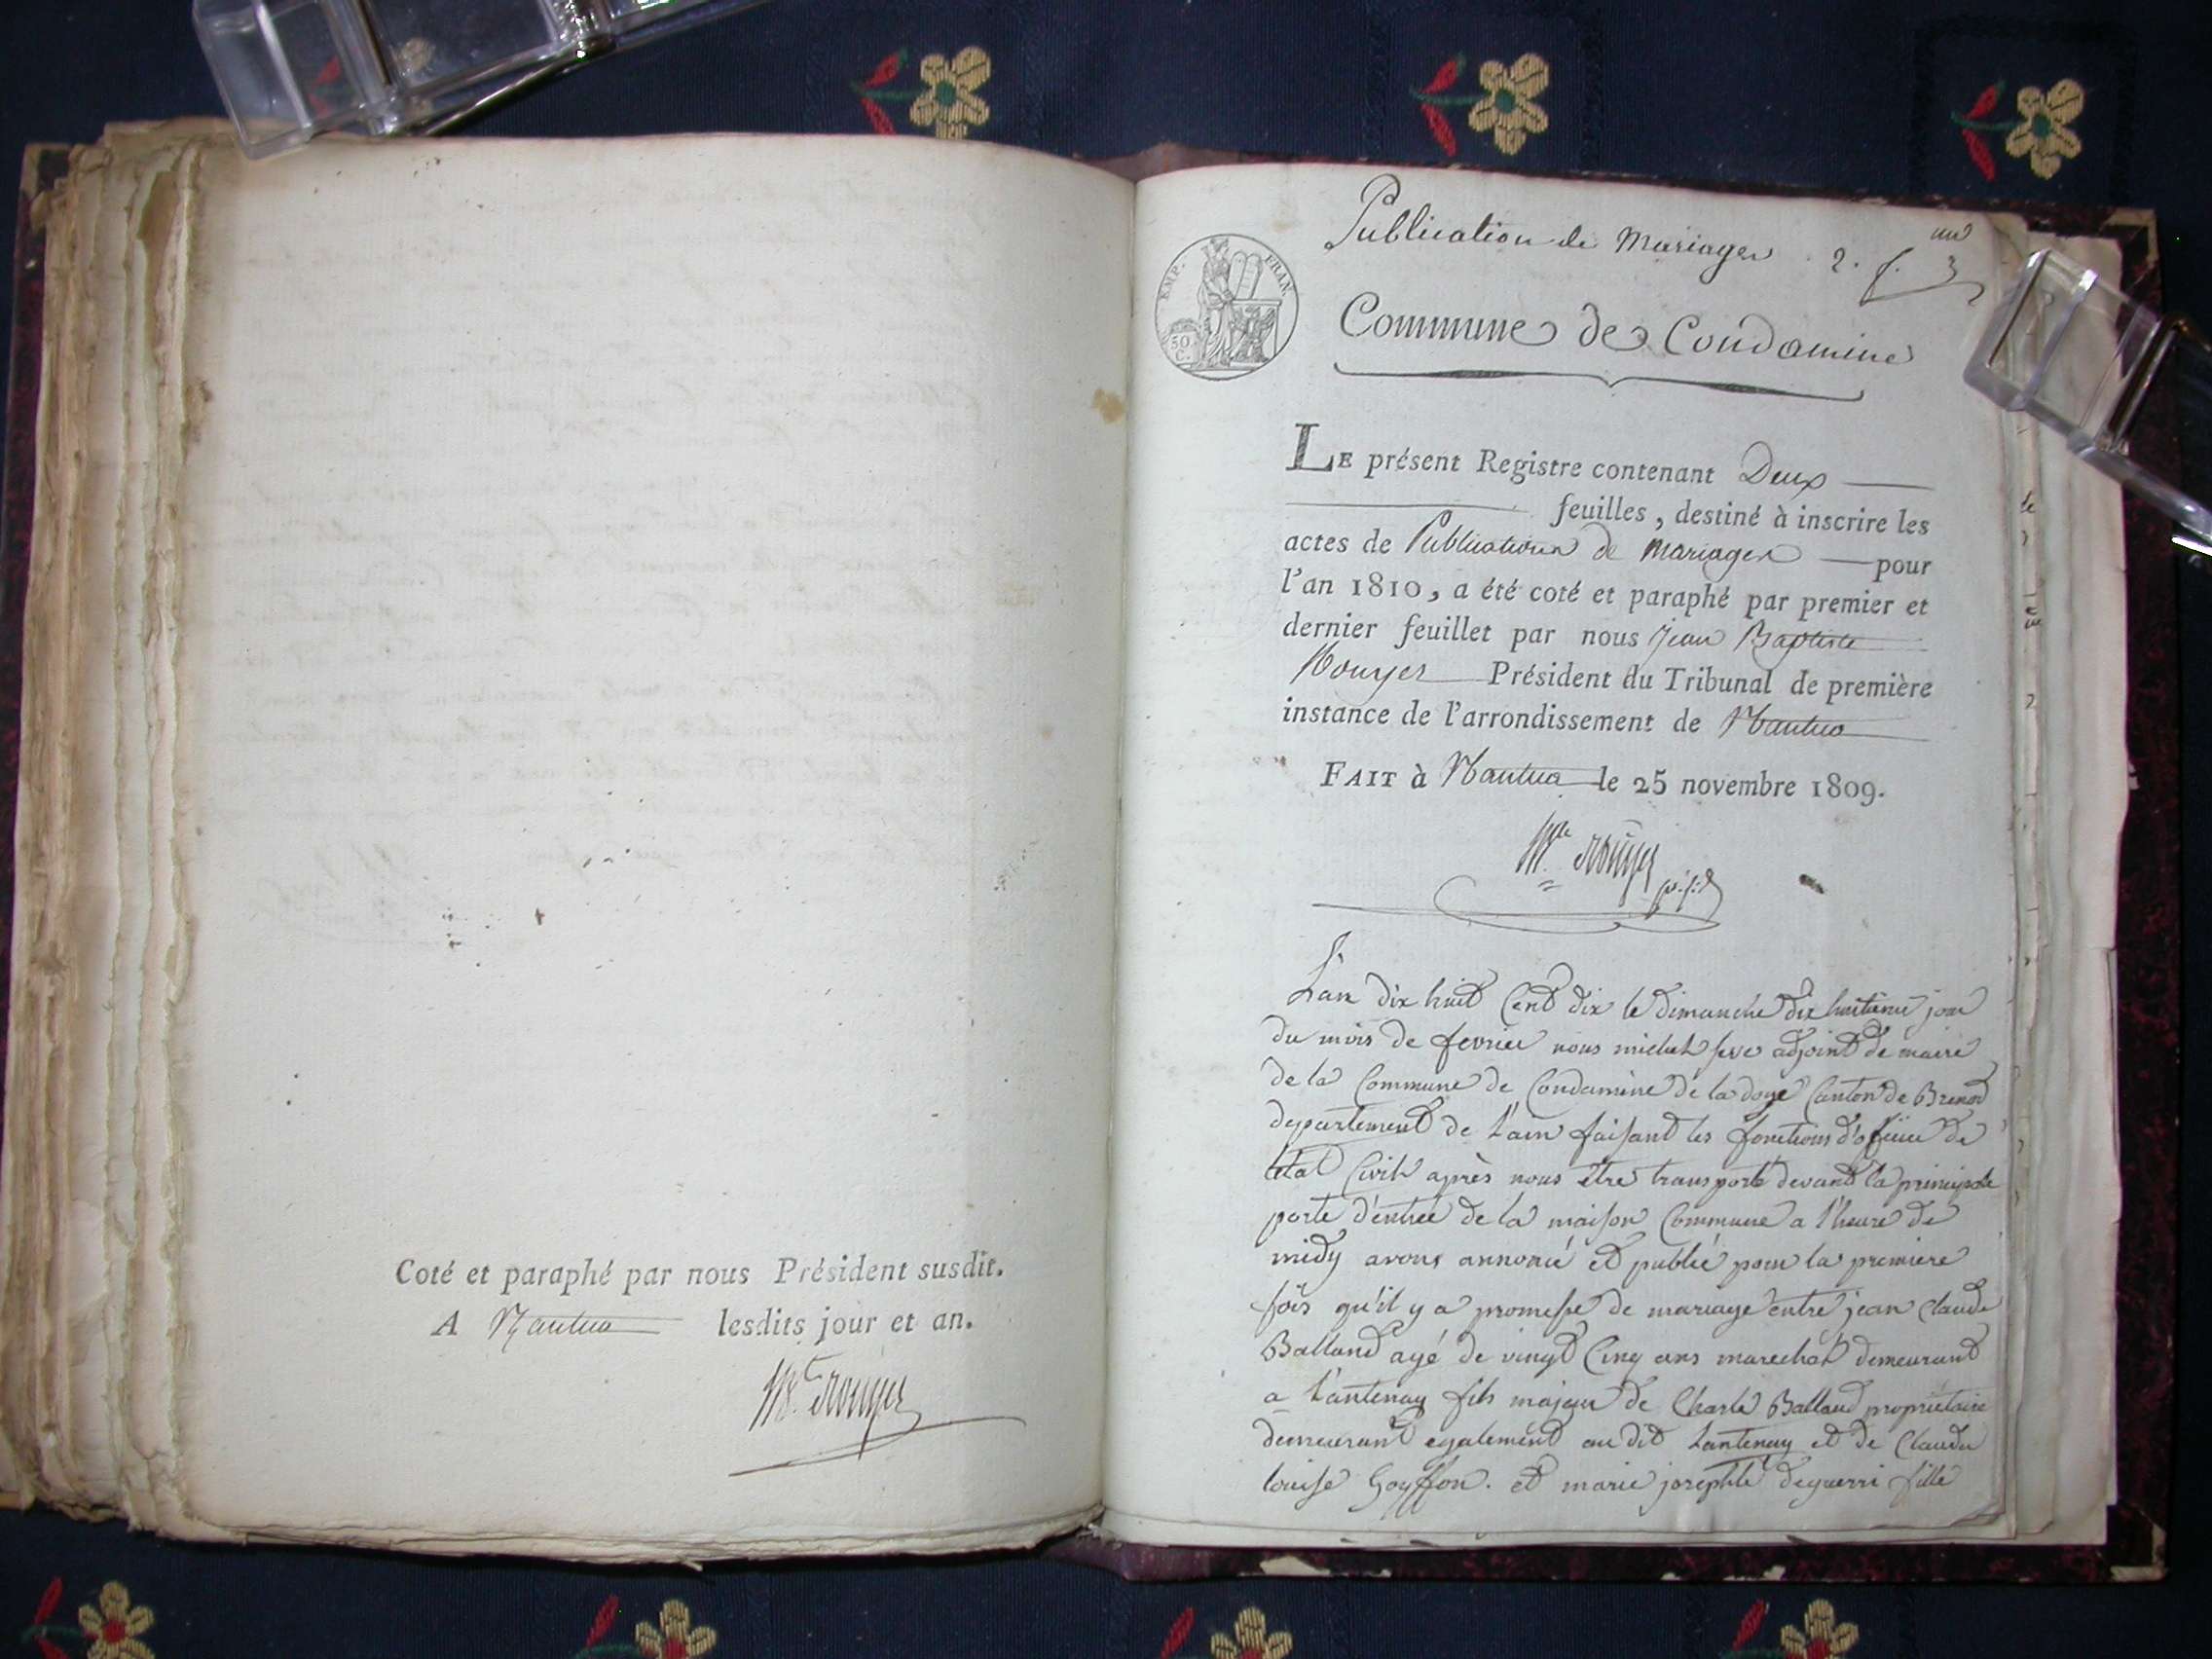 Coté et paraphé par nous Président susdit.
A Nantua lesdits jour et an.
Publication de Mariages . 2. f.
un
EMP. FRAN.
50. C.
Commune de Condamine
LE présent Registre contenant Deux
feuilles, destiné à inscrire les
actes de Publications de Mariages pour
l'an 1810, a été coté et paraphé par premier et
dernier feuillet par nous Jean Baptiste
Rouyer Président du Tribunal de première
instance de l'arrondissement de Nantua
FAIT à Nantua le 25 novembre 1809.
L'an dix huit Cent dix le dimanche dix huitieme jour
du mois de fevrier nous michel adjoint de maire
de la Commune de Condamine de la doye Canton de Brenod
departement de l'ain faisant les fonctions d'officier de
letat Civil après nous être transporté devant la principale
porte d'entrée de la maison Commune a l'heure de
midy avons annoncé et publié pour la premiere
fois qu'il y a promesse de mariage entre jean Claude
Balland agé de vingt Cinq ans marechal demeurant
a Lantenay fils majeur de Charle Balland propriétaire
demeurant egalement au dit Lantenay et de Claudu
louise Goyffon. et marie josephte deguerri fille